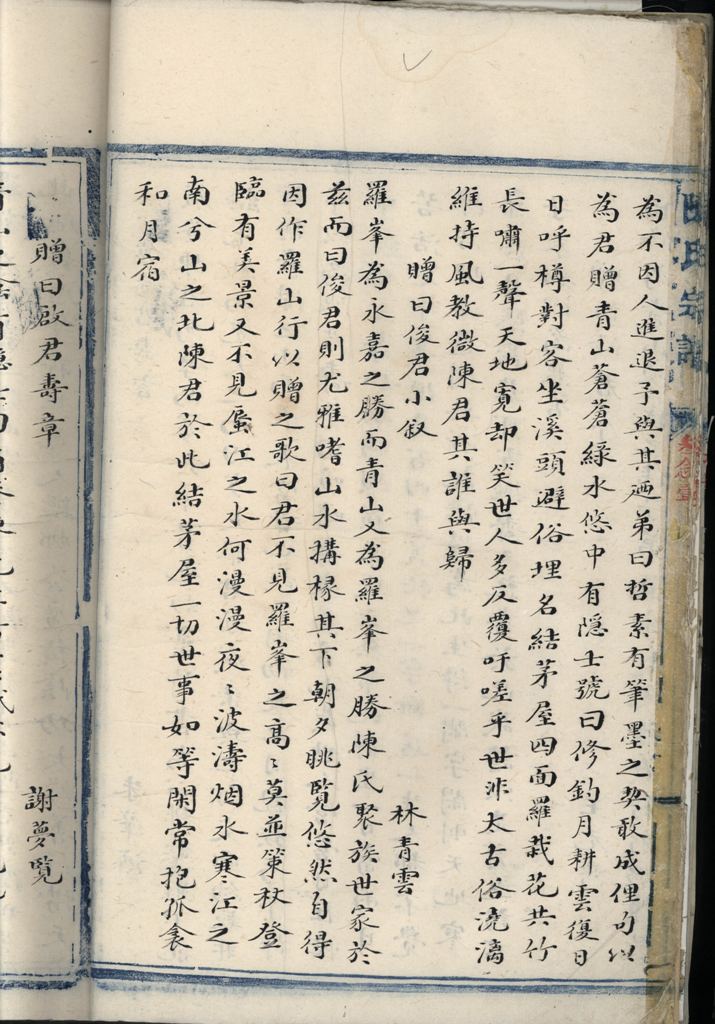 陳氏宗譜
為不因人進退予與其廼弟曰哲素有筆墨之契敢成俚句以
為君贈青山蒼蒼緑水悠中有隠士號曰修釣月耕雲復日
日呼樽對客坐溪頭避俗埋名結茅屋四面羅栽花共竹
長嘯一聲天地寛却笑世人多反覆吁嗟乎世非太古俗澆漓
維持風教微陳君其誰與歸
贈曰俊君小叙
林青雲
羅峯為永嘉之勝而青山又為羅峯之勝陳氏聚族世家於
兹而曰俊君則尤雅嗜山水搆椽其下朝夕眺覧悠然自得
因作羅山行以贈之歌曰君不見羅峯之高〻莫並策杖登
臨有美景又不見蜃江之水何漫漫夜〻波濤烟水寒江之
南兮山之北陳君於此結茅屋一切世事如等閑常抱孤衾
和月宿
贈曰啟君壽章
謝夢覧